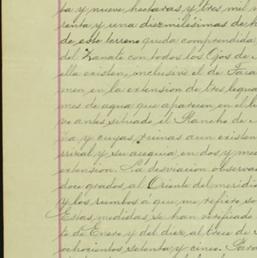 ta y nueve hectaras, y tres mil
renta y una diezmilésimas de h
de este terreno queda comprendida
del Zanate con todos los Ojos de
ella existen, inclusive el de Tara
men en la extension de tres leguas
mes de agua que aparecen en el
vo antes situado el Rancho de
ria, y cuyas ruinas aun existen
y su acequia, en dos y me
extension. La desviacion observa
doce grados, al Oriente del meridi
y los rumbos á que me refiero so
Estas medidas se han verificado
te de Enero y del diez al trece de
ochocientos setenta y cinco. Para